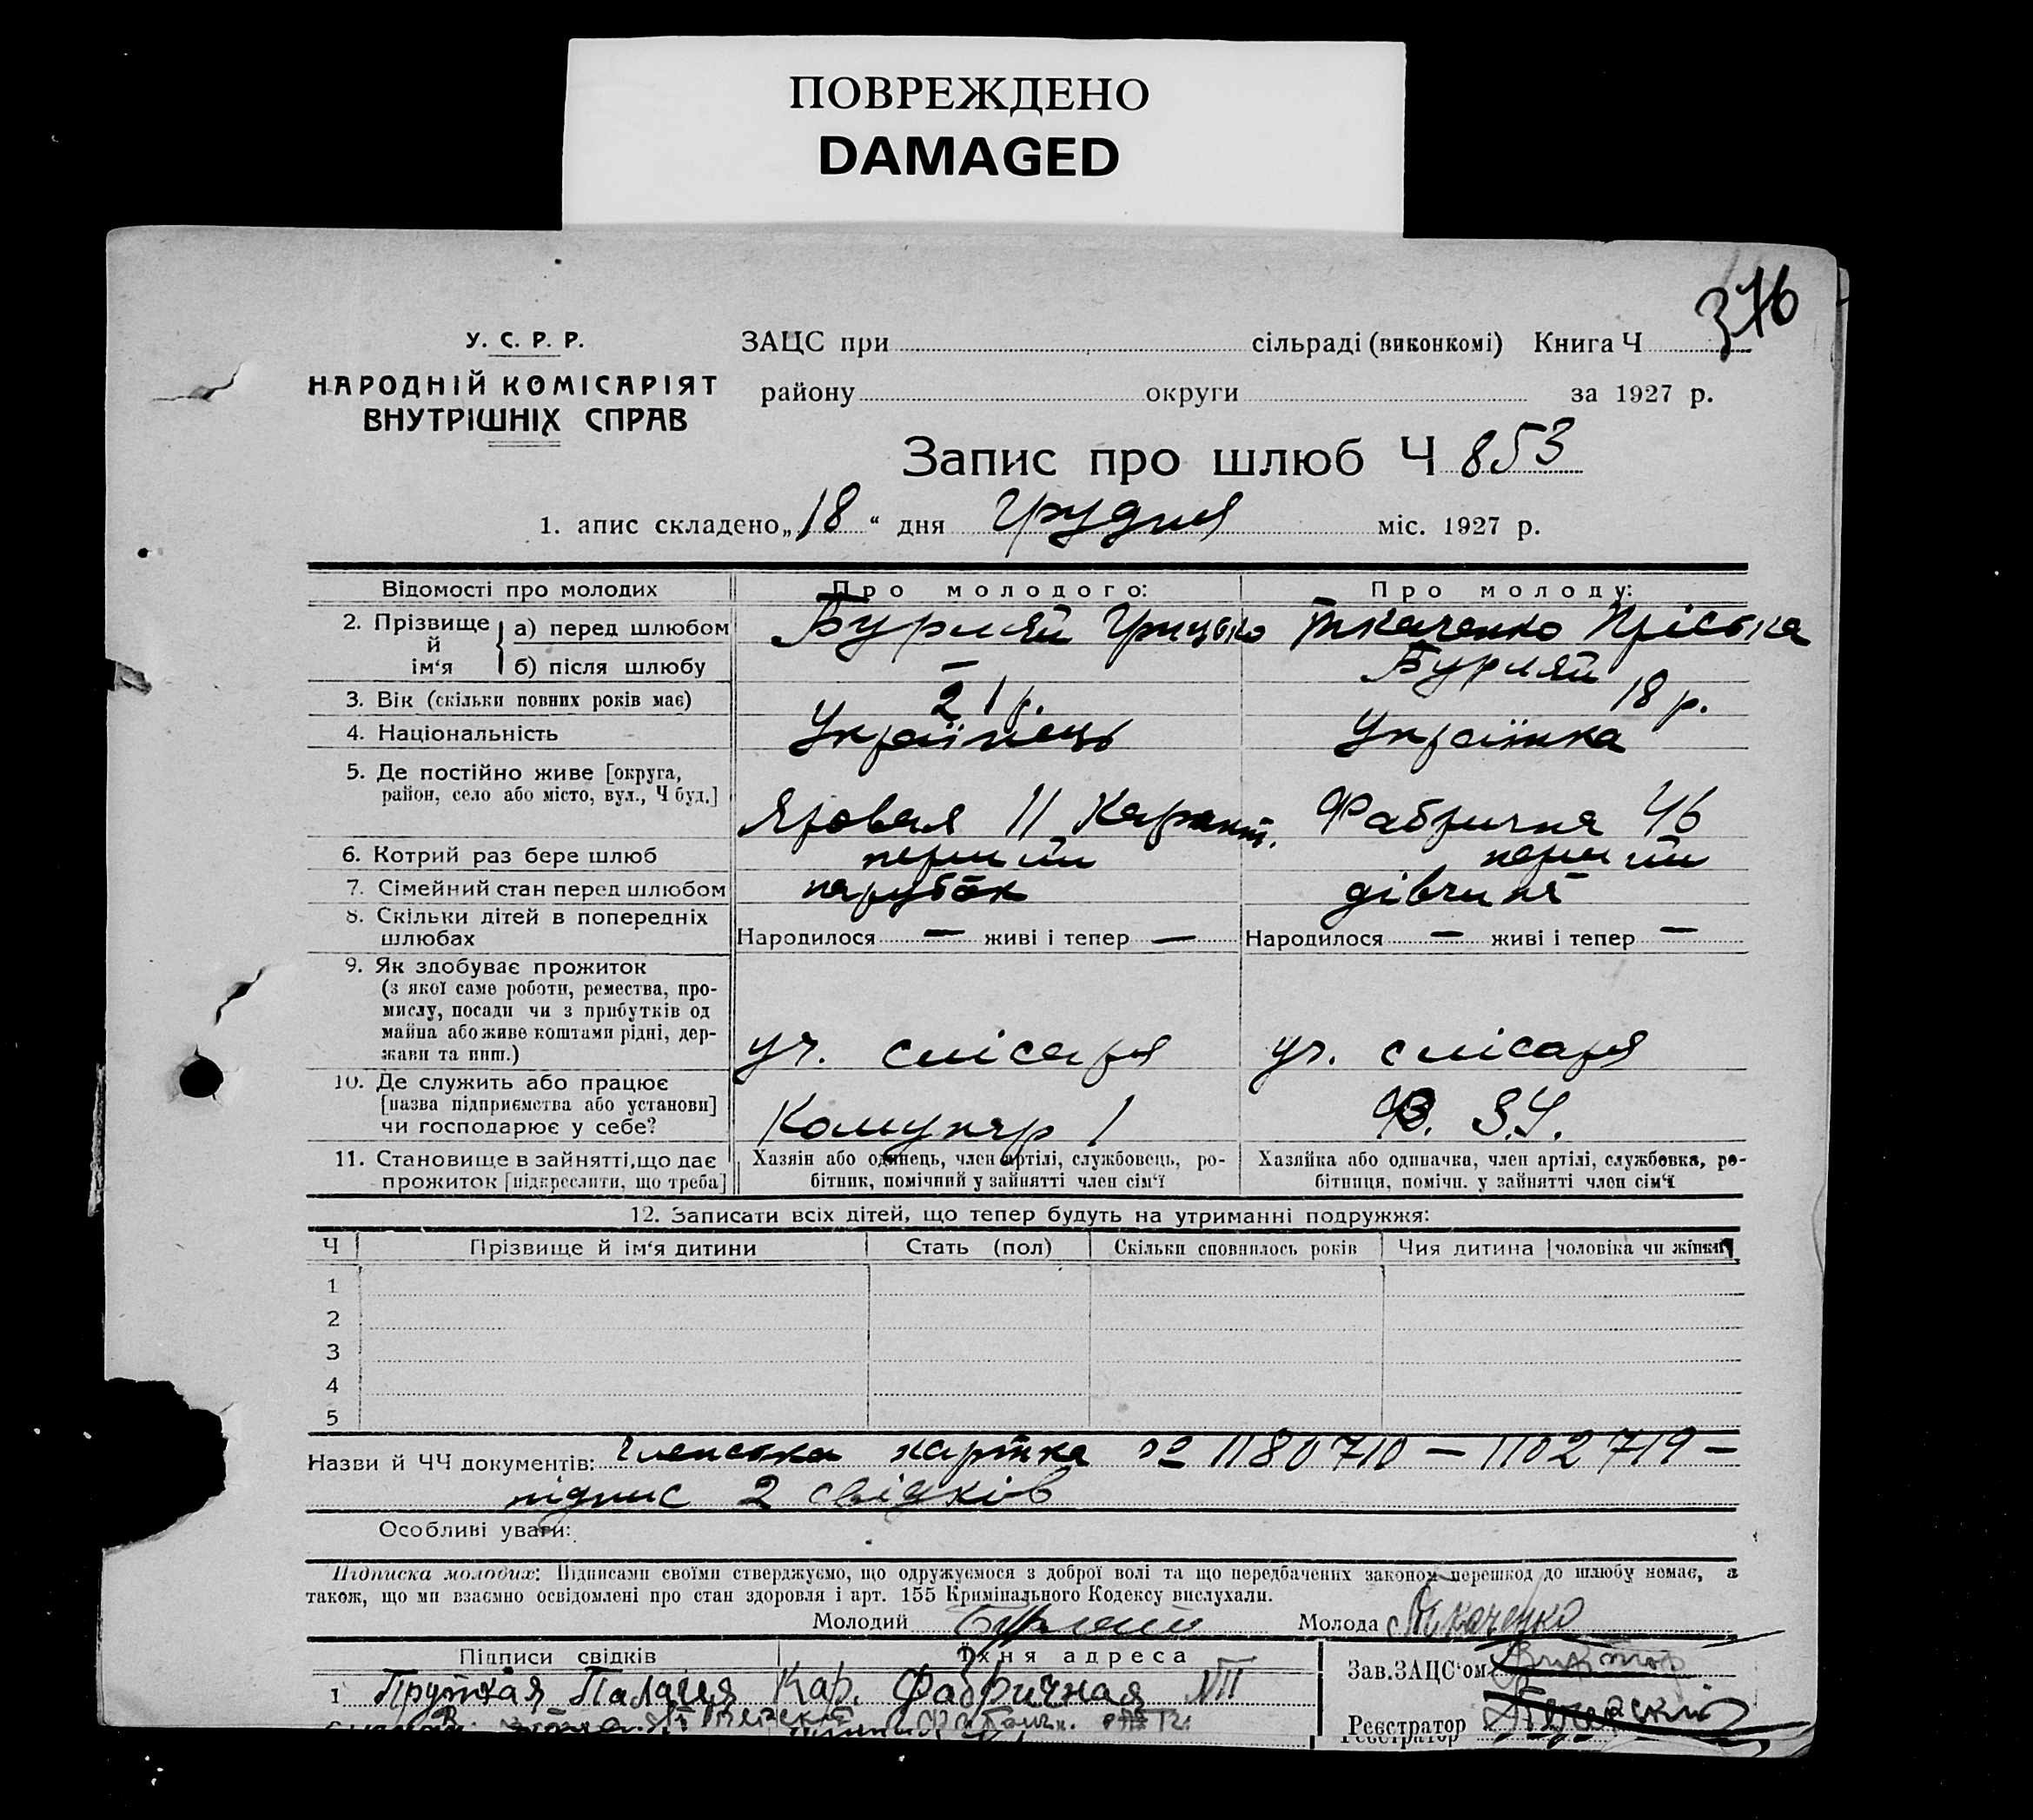 ПОВРЕЖДЕНО
DAMAGED
376
У. С. Р. Р.
НАРОДНІЙ КОМІСАРІЯТ
ВНУТРІШНІХ СПРАВ
ЗАЦС при сільраді (виконкомі) Книга Ч
району округи за 1927 р.
Запис про шлюб Ч 853
1. апис складено „18“ дня Грудня міс. 1927 р.
Відомості про молодих Про молодого: Про молоду:
2. Прізвище й ім'я
а) перед шлюбом Бурляй Грицько Ткаченко Пріська
б) після шлюбу — Бурляй
3. Вік (скільки повних років має) 21 р. 18 р.
4. Національність Українець Українка
5. Де постійно живе [округа,
район, село або місто, вул., Ч буд.] Яровая 11 Карант. Фабрична 46
6. Котрий раз бере шлюб перший перший
7. Сімейний стан перед шлюбом парубок дівчина
8. Скільки дітей в попередніх
шлюбах Народилося — живі і тепер — Народилося — живі і тепер —
9. Як здобуває прожиток
(з якої саме роботи, ремества, про-
мислу, посади чи з прибутків од
майна або живе коштами рідні, дер-
жави та инш.) уч. слісаря уч. слісаря
10. Де служить або працює
[назва підприємства або установи]
чи господарює у себе? Комунар 1 Ф. З.У.
11. Становище в зайнятті, що дає
прожиток [підкреслити, що треба]
Хазяін або одинець, член артілі, службовець, ро-
бітник, помічний у зайнятті член сім'ї
Хазяйка або одиначка, член артілі, службовка, ро-
бітниця, помічн. у зайнятті член сім'ї
12. Записати всіх дітей, що тепер будуть на утриманні подружжя:
Ч Прізвище й ім'я дитини Стать (пол) Скільки сповнилось років Чия дитина чоловіка чи жінки
1
2
3
4
5
Назви й ЧЧ документів: Членська картка № 1180710 — 1102719 —
підпис 2 свідків
Особливі уваги:
Підписка молодих: Підписами своїми стверджуємо, що одружуємося з доброї волі та що передбачених законом перешкод до шлюбу немає, а
також, що ми взаємно освідомлені про стан здоровля і арт. 155 Кримінального Кодексу вислухали.
Молодий Бурляй Молода Ткаченко
Підписи свідків Їхня адреса
1 Палагея Кар. Фабричная
Зав. ЗАЦС'ом
Реєстратор
Реєстратор